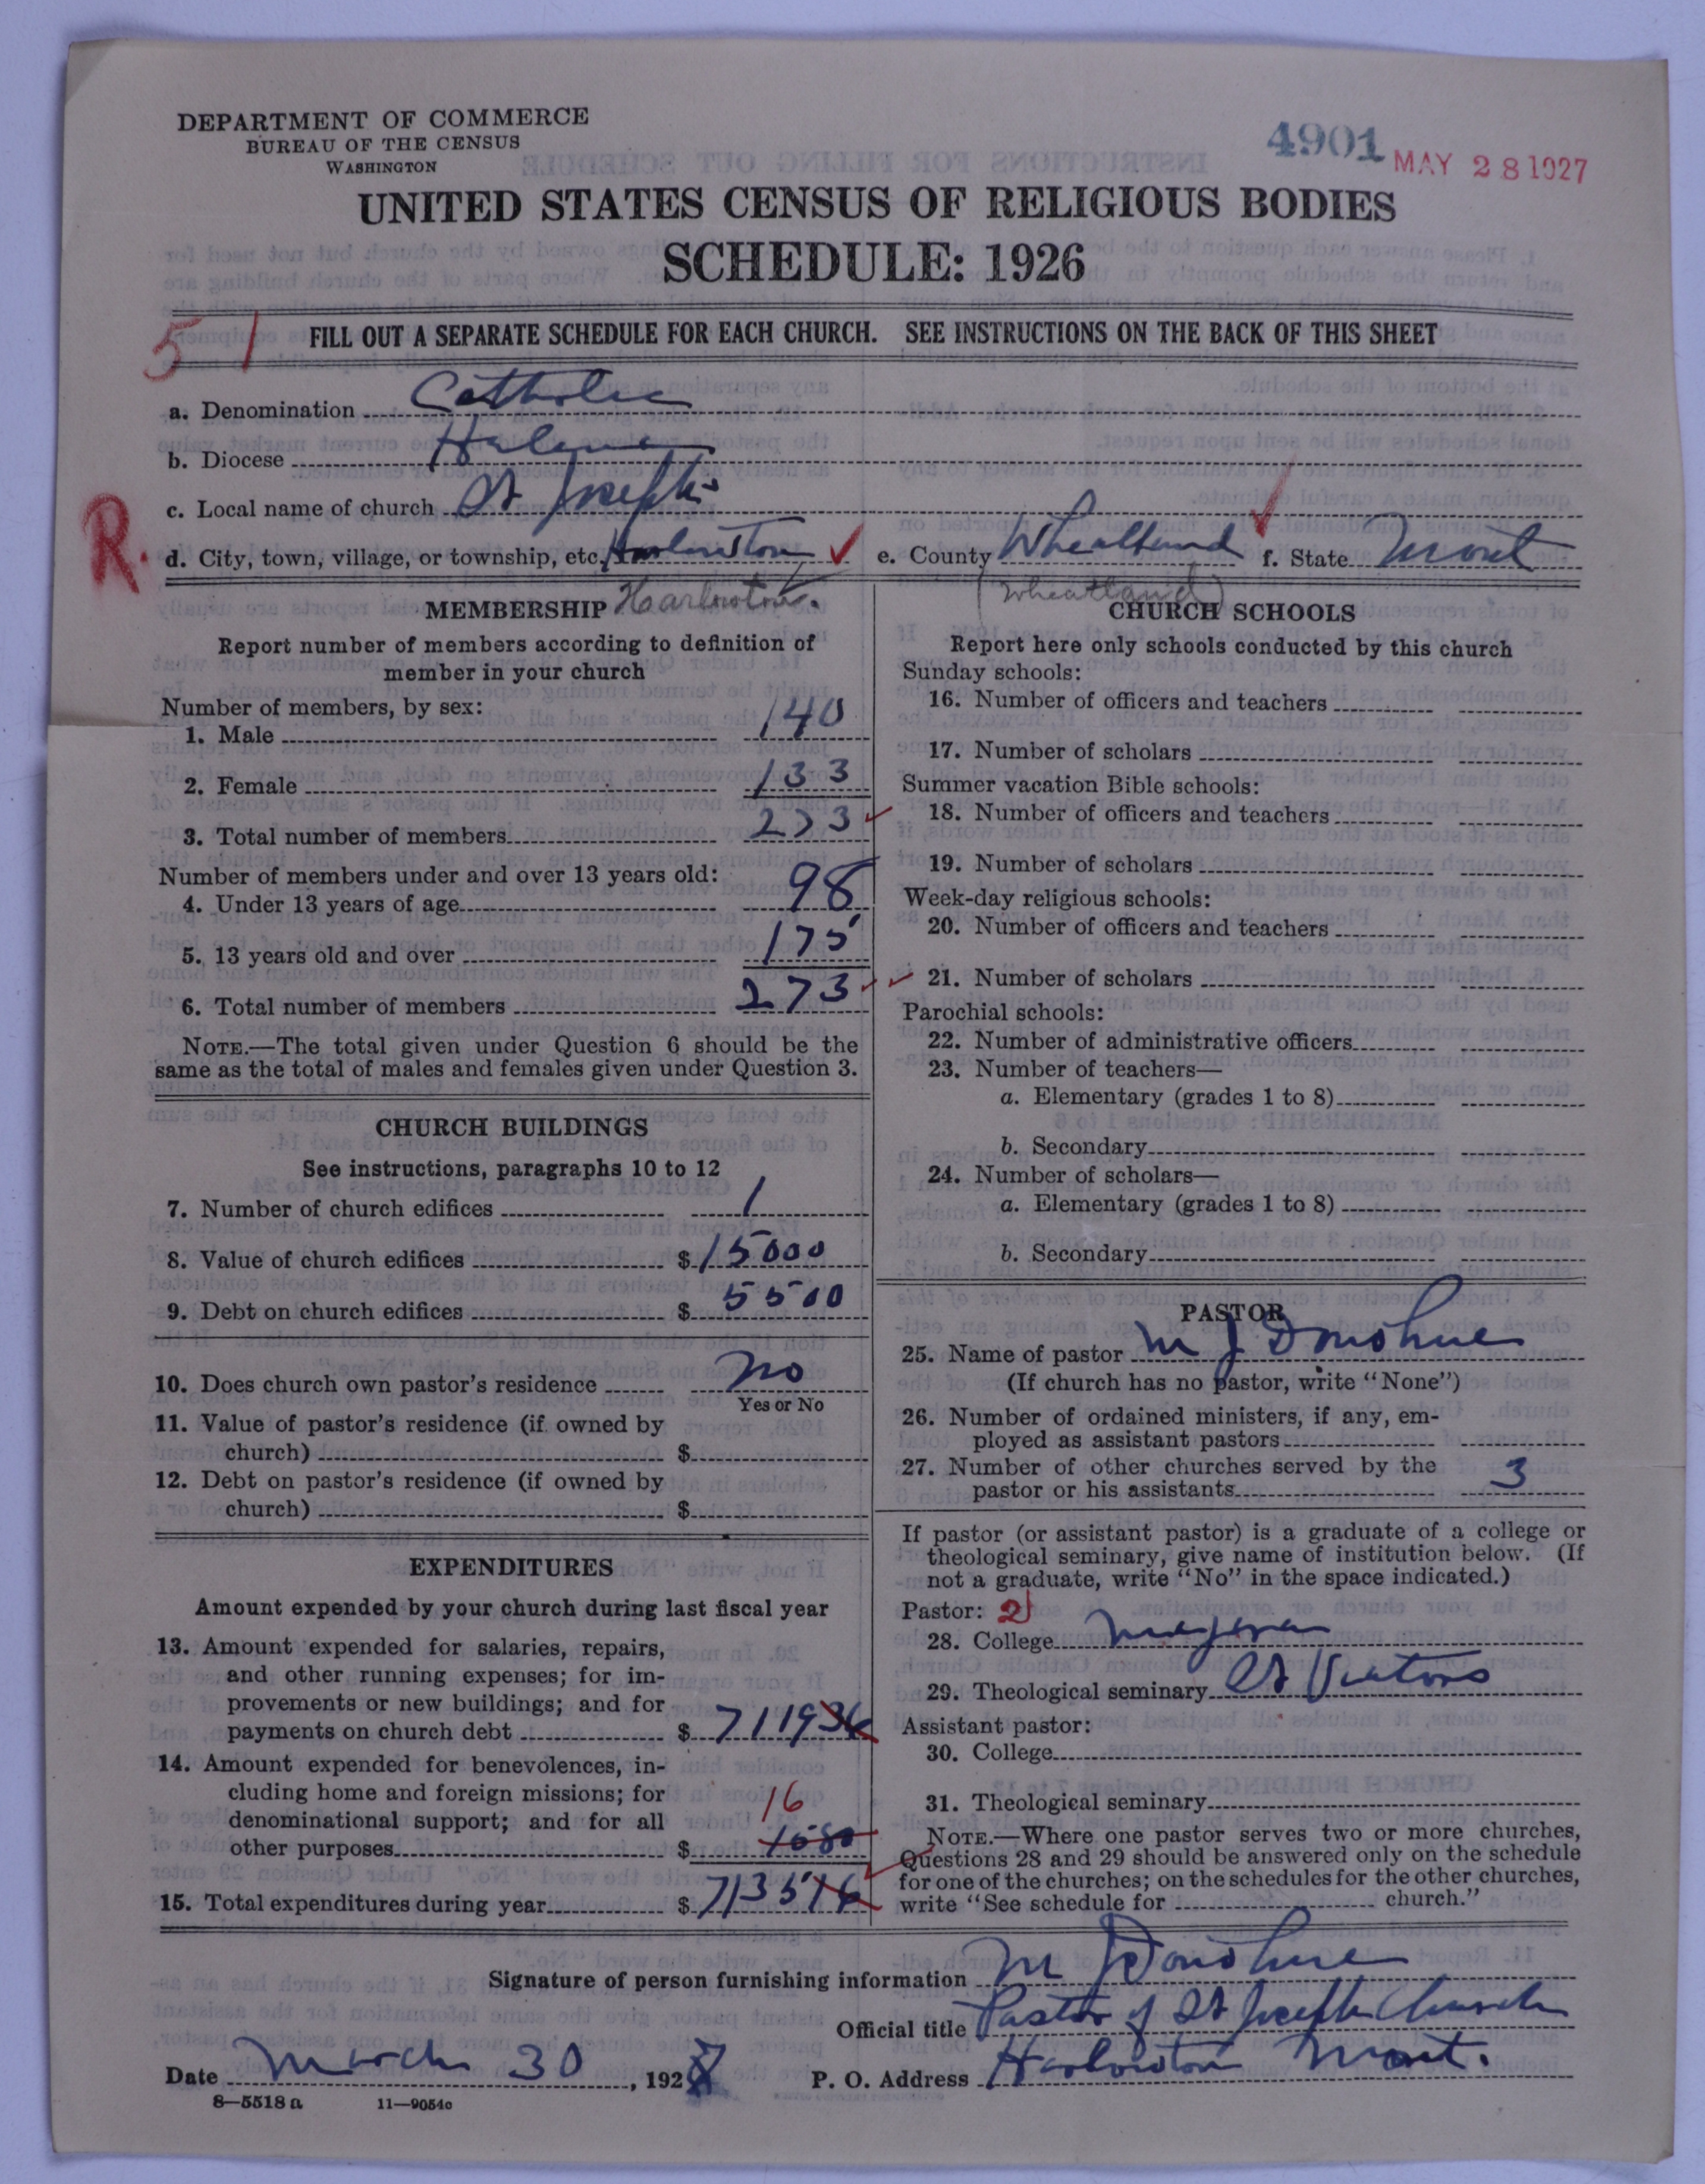 DEPARTMENT OF COMMERCE
BUREAU OF THE CENSUS
WASHINGTON
4901 MAY 28 1927
UNITED STATES CENSUS OF RELIGIOUS BODIES
SCHEDULE: 1926
5 1
FILL OUT A SEPARATE SCHEDULE FOR EACH CHURCH. SEE INSTRUCTIONS ON THE BACK OF THIS SHEET
a. Denomination Catholic
b. Diocese Helena
c. Local name of church St Josephs
R.
d. City, town, village, or township, etc. Harlowton e. County Wheatland f. State Mont
Harlowton. (Wheatland)
MEMBERSHIP
Report number of members according to definition of
member in your church
Number of members, by sex:
1. Male 140
2. Female 133
3. Total number of members 273
Number of members under and over 13 years old:
4. Under 13 years of age 98
5. 13 years old and over 175
6. Total number of members 273
NOTE.—The total given under Question 6 should be the
same as the total of males and females given under Question 3.
CHURCH BUILDINGS
See instructions, paragraphs 10 to 12
7. Number of church edifices 1
8. Value of church edifices $ 15000
9. Debt on church edifices $ 5500
10. Does church own pastor's residence no
Yes or No
11. Value of pastor's residence (if owned by
church) $
12. Debt on pastor's residence (if owned by
church) $
EXPENDITURES
Amount expended by your church during last fiscal year
13. Amount expended for salaries, repairs,
and other running expenses; for im-
provements or new buildings; and for
payments on church debt $ 711936
14. Amount expended for benevolences, in-
cluding home and foreign missions; for
denominational support; and for all
16
other purposes $ 1580
15. Total expenditures during year $ 713516
CHURCH SCHOOLS
Report here only schools conducted by this church
Sunday schools:
16. Number of officers and teachers
17. Number of scholars
Summer vacation Bible schools:
18. Number of officers and teachers
19. Number of scholars
Week-day religious schools:
20. Number of officers and teachers
21. Number of scholars
Parochial schools:
22. Number of administrative officers
23. Number of teachers—
a. Elementary (grades 1 to 8)
b. Secondary
24. Number of scholars—
a. Elementary (grades 1 to 8)
b. Secondary
PASTOR
25. Name of pastor M J Donohue
(If church has no pastor, write "None")
26. Number of ordained ministers, if any, em-
ployed as assistant pastors
27. Number of other churches served by the
pastor or his assistants 3
If pastor (or assistant pastor) is a graduate of a college or
theological seminary, give name of institution below. (If
not a graduate, write "No" in the space indicated.)
Pastor: 2
28. College
29. Theological seminary St Viators
Assistant pastor:
30. College
31. Theological seminary
NOTE.—Where one pastor serves two or more churches,
Questions 28 and 29 should be answered only on the schedule
for one of the churches; on the schedules for the other churches,
write "See schedule for church."
Signature of person furnishing information M J Donohue
Official title Pastor of St Joseph Church
Date March 30, 1927 P. O. Address Harlowton Mont.
8—5518 a 11—9054c